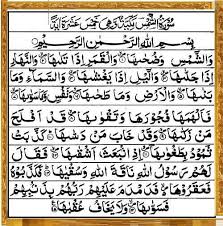 سُوْرَةُ الشَّمْسِ مَكِّيَّةٌ وَّهِيَ خَمْسَ عَشْرَةَ اٰيَةً
بِسْمِ اللّٰهِ الرَّحْمٰنِ الرَّحِيْمِ
وَالشَّمْسِ وَضُحٰىهَا ۝ وَالْقَمَرِ اِذَا تَلٰىهَا ۝ وَالنَّهَارِ
اِذَا جَلّٰىهَا ۝ وَالَّيْلِ اِذَا يَغْشٰىهَا ۝ وَالسَّمَآءِ وَمَا
بَنٰىهَا ۝ وَالْاَرْضِ وَمَا طَحٰىهَا ۝ وَنَفْسٍ وَّمَا سَوّٰىهَا ۝
فَاَلْهَمَهَا فُجُوْرَهَا وَتَقْوٰىهَا ۝ قَدْ اَفْلَحَ
مَنْ زَكّٰىهَا ۝ وَقَدْ خَابَ مَنْ دَسّٰىهَا ۝ كَذَّبَتْ
ثَمُوْدُ بِطَغْوٰىهَا ۝ اِذِ انْۢبَعَثَ اَشْقٰىهَا ۝ فَقَالَ
لَهُمْ رَسُوْلُ اللّٰهِ نَاقَةَ اللّٰهِ وَسُقْيٰهَا ۝ فَكَذَّبُوْهُ
فَعَقَرُوْهَا ۝ فَدَمْدَمَ عَلَيْهِمْ رَبُّهُمْ بِذَنْۢبِهِمْ
فَسَوّٰىهَا ۝ وَلَا يَخَافُ عُقْبٰهَا ۝